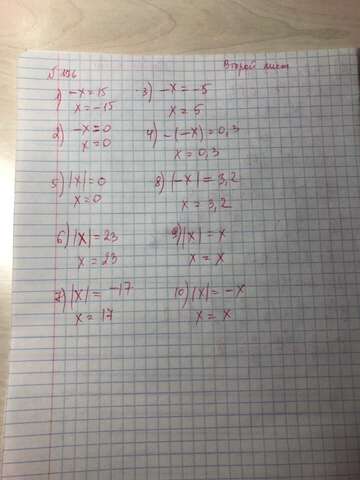 № 196 Второй лист
1) -x = 15 3) -x = -5
x = -15 x = 5
2) -x = 0 4) -(-x) = 0,3
x = 0 x = 0,3
5) |x| = 0 8) |-x| = 3,2
x = 0 x = 3,2
6) |x| = 23 9) |x| = x
x = 23 x = x
7) |x| = -17 10) |x| = -x
x = 17 x = x